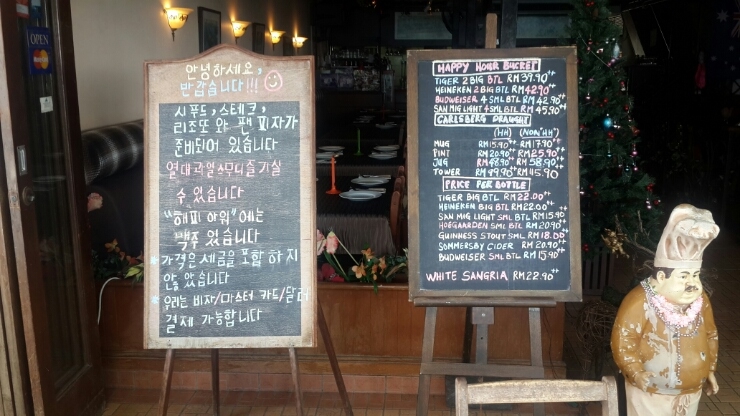 OPEN
안녕하세요,
반갑습니다!!!
시푸드, 스테크,
리조또 와 팬 피자가
준비되어 있습니다
열대 과일 스무디 즐기실
수 있습니다
"해피 아워"에는
맥주 있습니다
가격은 세금을 포함 하지
안 았 습니다
우리는 비자/마스터 카드/달러
결제 가능합니다
HAPPY HOUR BUCKET
TIGER 2 BIG BTL RM39.90++
HEINEKEN 2 BIG BTL RM42.90++
BUDWEISER 4 SML BTL RM42.90++
SAN MIG LIGHT 4 SML BTL RM45.90++
CARLSBERG DRAUGHT
(HH) (NON'HH)
MUG RM15.90++ RM17.90++
PINT RM20.90++ RM25.90++
JUG RM48.90++ RM58.90++
TOWER RM
PRICE PER BOTTLE
TIGER BIG BTL RM22.00++
HEINEKEN BIG BTL RM22.00++
SAN MIG LIGHT SML BTL RM15.90
HOEGAARDEN SML BTL RM20.90++
GUINNESS STOUT SML RM18.00
SOMMERSBY CIDER RM20.90++
BUDWEISER SML BTL RM15.90++
WHITE SANGRIA RM22.90++